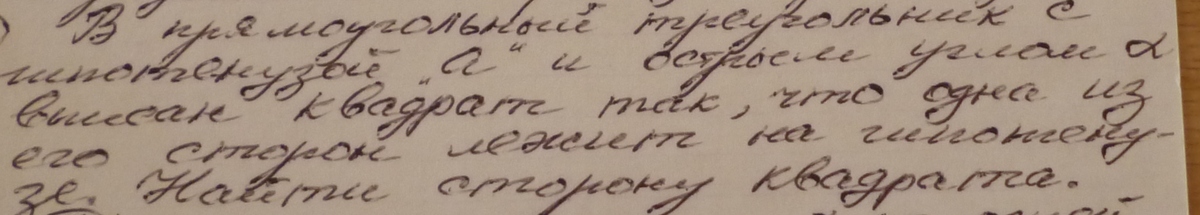 В прямоугольный треугольник с
гипотенузой „а" и острым углом α
вписан квадрат так, что одна из
его сторон лежит на гипотену-
зе. Найти сторону квадрата.